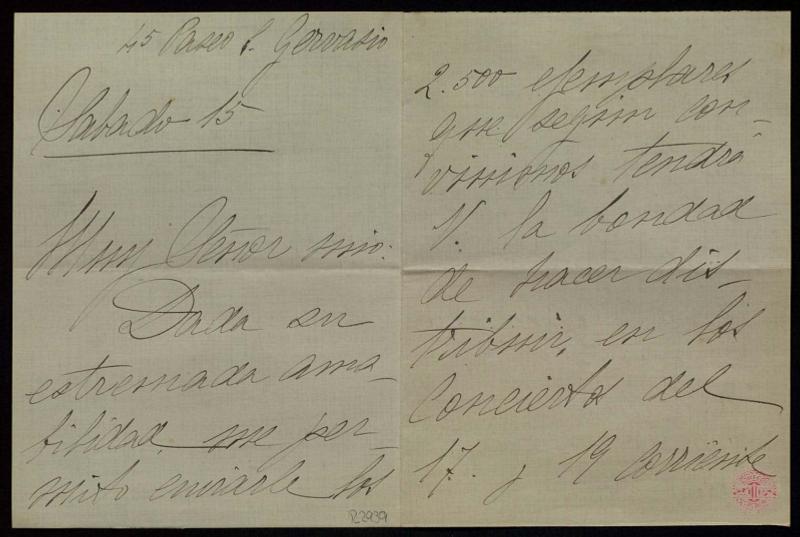 45 Paseo S. Gervasio
Sabado 15
Muy Señor mio:
Dada su
estremada ama-
bilidad, me per-
mito enviarle los
R.2939
2.500 ejemplares
que segun con-
vinimos tendrá
V. la bondad
de hacer dis-
tribuir, en los
Conciertos del
17. y 19 corriente